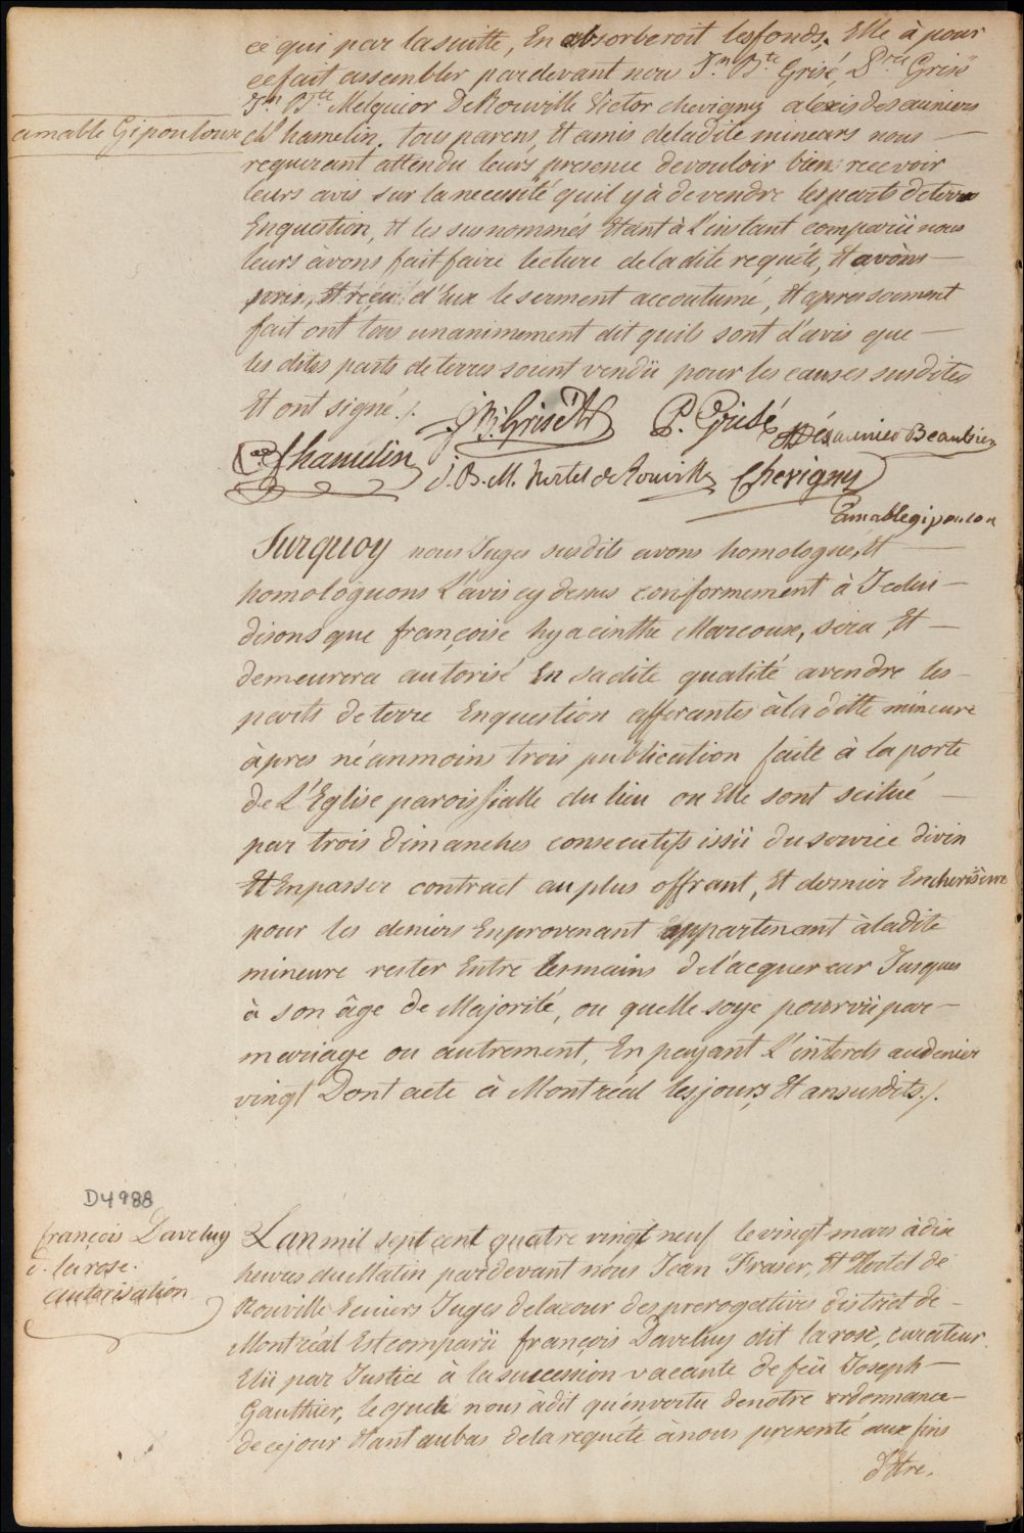 ce qui par lasuitte, En absorberoit lesfonds. Elle à pour
cefait assembler pardevant nou Jn. Bte Grisé, Prre Grisé
Jn. Bte Melquior DeRouville Victor chevigny alexis desauniers
amable Gipouloux
chs hamelin, tous parens, Et amis deladite mineurs nous
requerant attendu leurs presence devouloir bien recevoir
leurs avis sur lanecessité quil y à devendre lesparts deterre
Enquestion, Et les susnommés Etant à L'instant comparüs nous
leurs àvons fait faire lecture deladite requéte, Et avons
pris, Et reçu d'Eux leserment accoutumé, Et apressoement
fait ont tous unanimement dit quils sont d'avis que
les dites parts deterres soient vendü pour les causes susdites
Et ont signé./.
J Bt. Grisé
P. Grisé
Désaunier Beaubien
Chs hamelin
J. B. M. hertel de Rouville
Chevigny
Amablegipoulou
Surquoy nous Juges susdits avons homologué, Et
homologuons L'avis cy dessus conformement à Icelui
disons que françoise hyacinthe Marcoux, sera, Et
demeurera autorisé En sadite qualité avendre les
parts deterre Enquestion afferantes àla ditte mineure
àpres néanmoins trois publication faite à la porte
de L'Eglise paroissialle du lieu ou Elle sont scitué
par trois Dimanches consecutifs issü duservice divin
Et Enpasser contract auplus offrant, Et dernier Encherisseur
pour les deniers Enprovenant appartenant àladite
mineure rester Entre lesmains del'acquereur Jusques
à son âge de Majorité, ou quelle soye pourvüe par
mariage ou autrement, En payant L'interets audenier
vingt Dont acte à Montréal lesjours, Et ansusdits./.
D4988
françois Daveluy
d. larose.
autorisation
Lanmil sept cent quatre vingt neuf levingt mars àdix
heures duMatin pardevant nous Jean Fraser, Et Hertel de
Rouville Ecuiers Juges delacour desprerogatives district de
Montréal Estcomparü françois Daveluy dit larose, curateur
Elü par Justice à lasuccession vacante de feü Joseph
Gauthier, lequel nous àdit qu'envertu denotre ordonnance
decejour Etant aubas delarequéte ànous presenté aux fins
d'Etre.